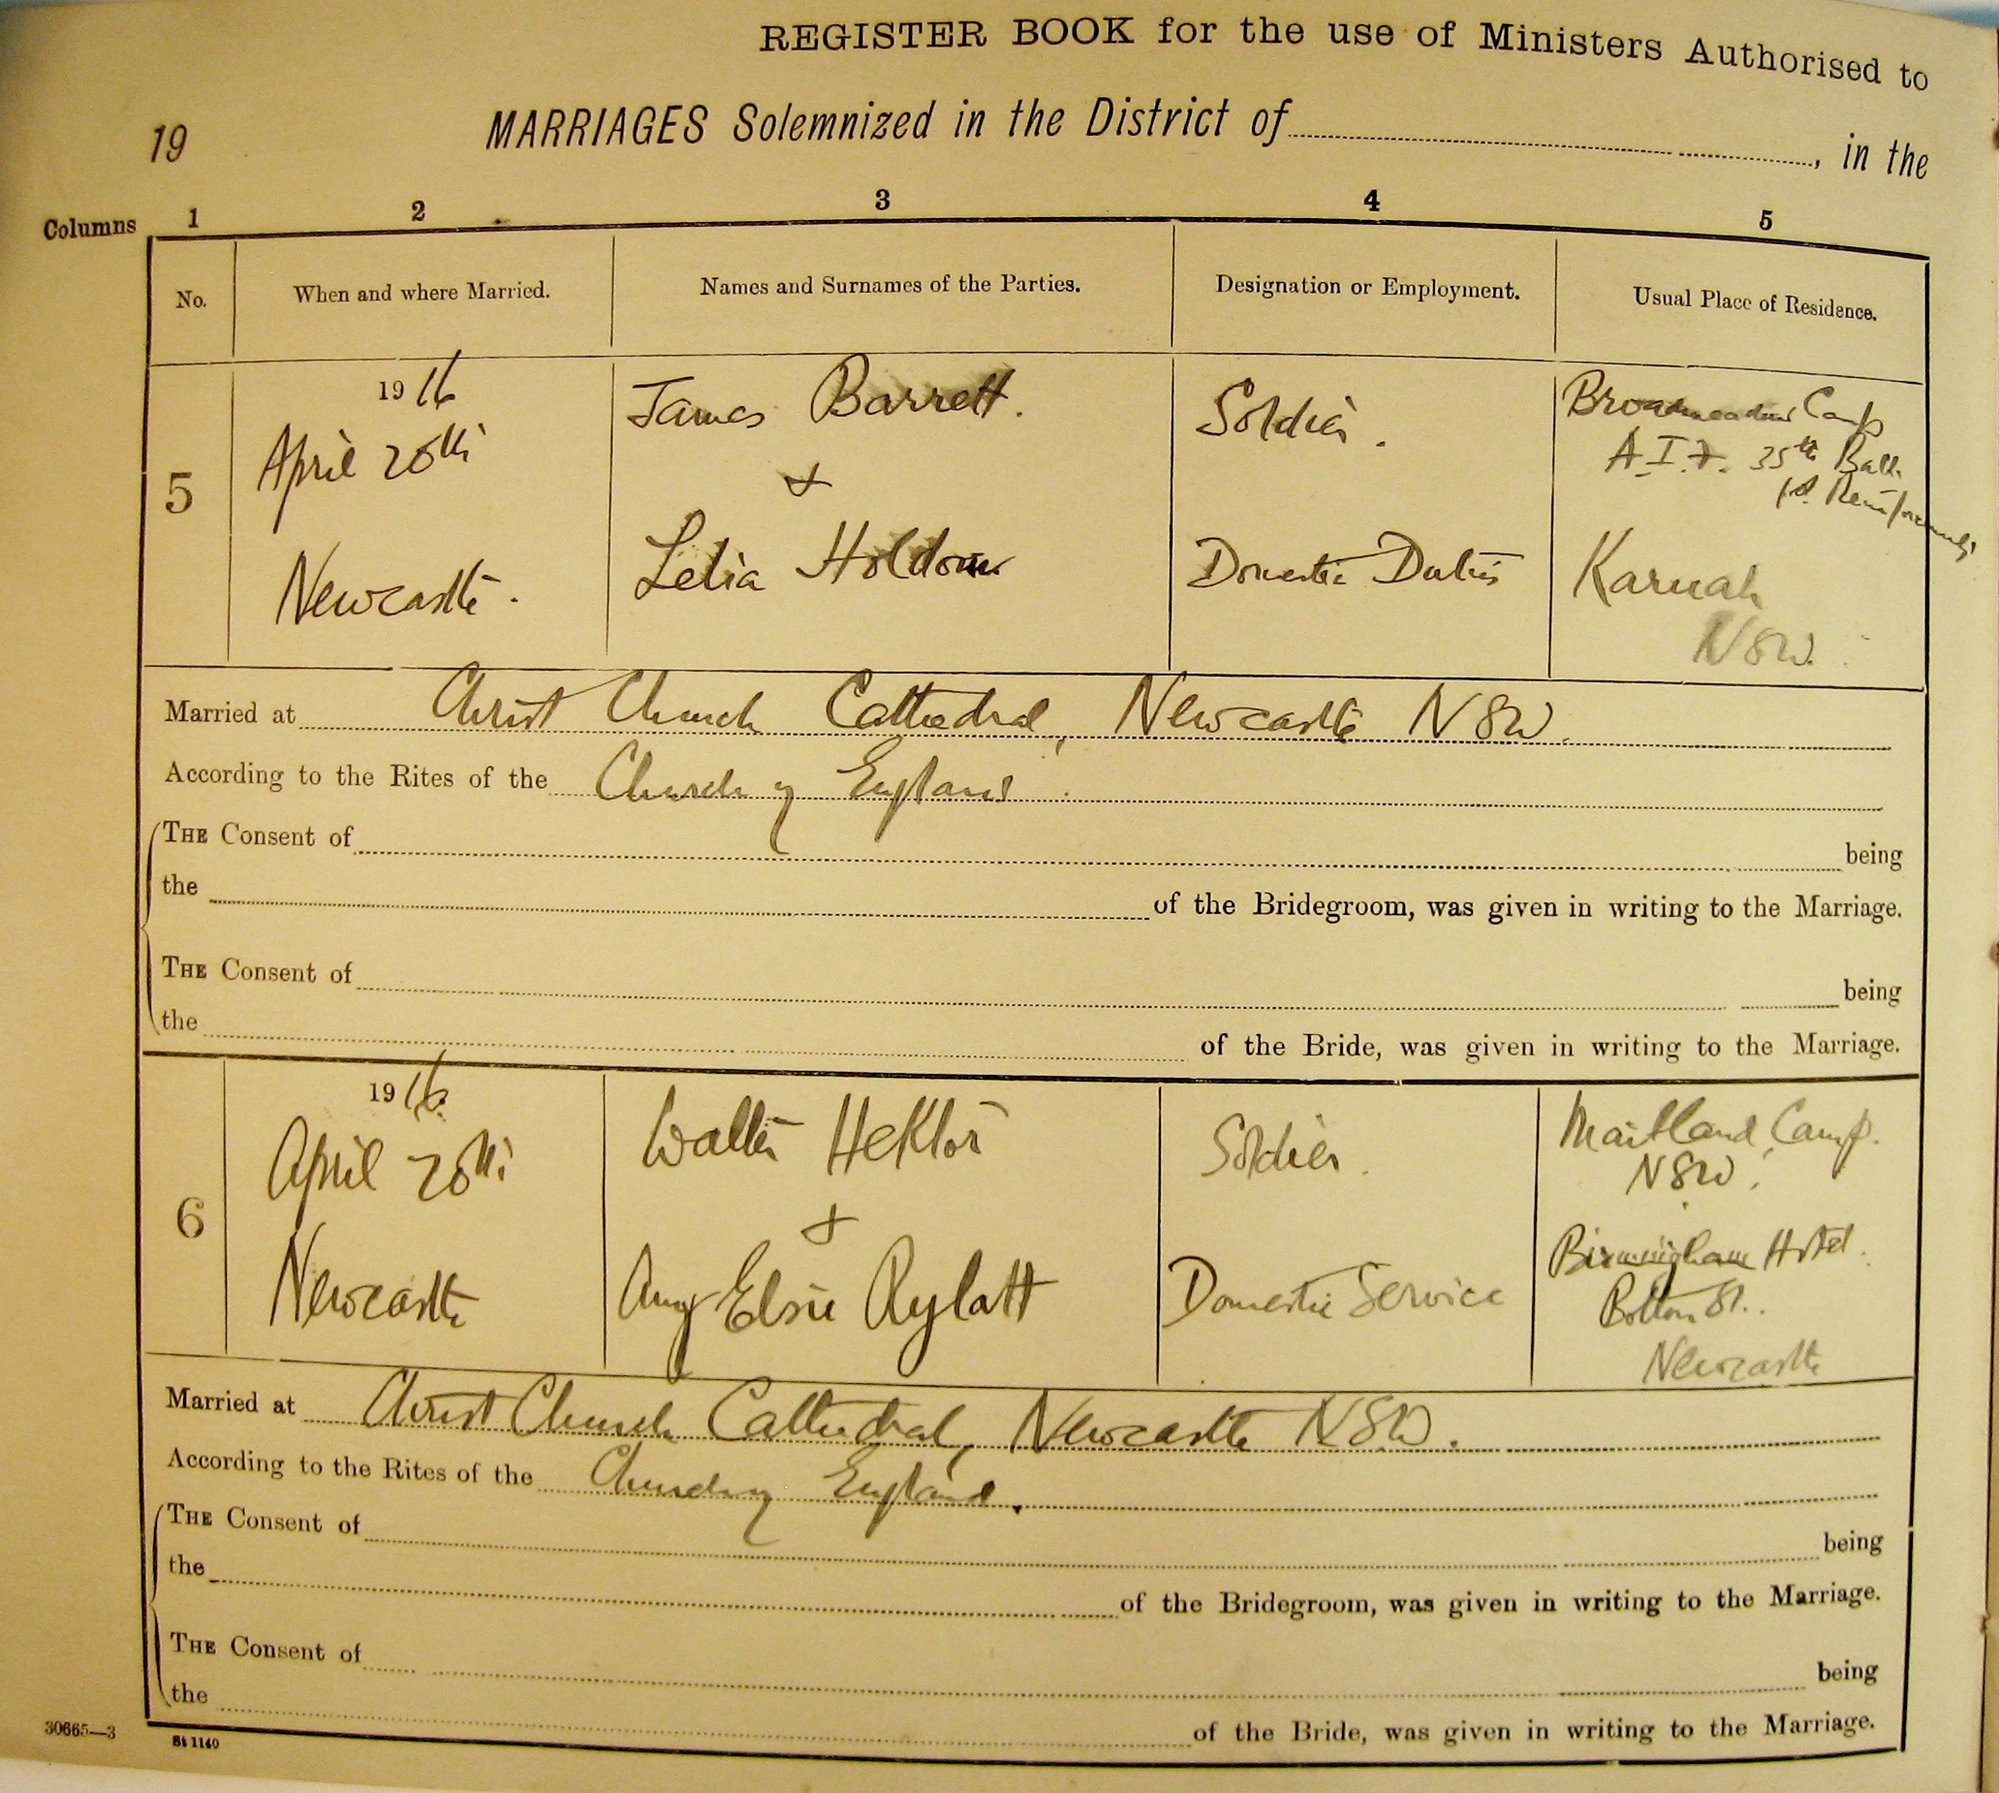 REGISTER BOOK for the use of Ministers Authorised to
19
MARRIAGES Solemnized in the District of , in the
Columns 1 2 3 4 5
No. When and where Married. Names and Surnames of the Parties. Designation or Employment. Usual Place of Residence.
5
1916
April 20th
Newcastle.
James Barrett.
+
Lelia Holdom
Soldier.
Domestic Duties
Broadmeadow Camp
A.I.F. 35th Batt.
1st Reinforcements
Karuah
NSW.
Married at Christ Church Cathedral, Newcastle NSW.
According to the Rites of the Church of England.
THE Consent of being
the of the Bridegroom, was given in writing to the Marriage.
THE Consent of being
the of the Bride, was given in writing to the Marriage.
6
1916.
April 20th
Newcastle
Walter Hektor
+
Amy Elsie Rylatt
Soldier.
Domestic Service
Maitland Camp.
NSW.
Birmingham Hotel.
Bolton St.
Newcastle
Married at Christ Church Cathedral, Newcastle NSW.
According to the Rites of the Church of England.
THE Consent of being
the of the Bridegroom, was given in writing to the Marriage.
THE Consent of being
the of the Bride, was given in writing to the Marriage.
30665—3
St 1140